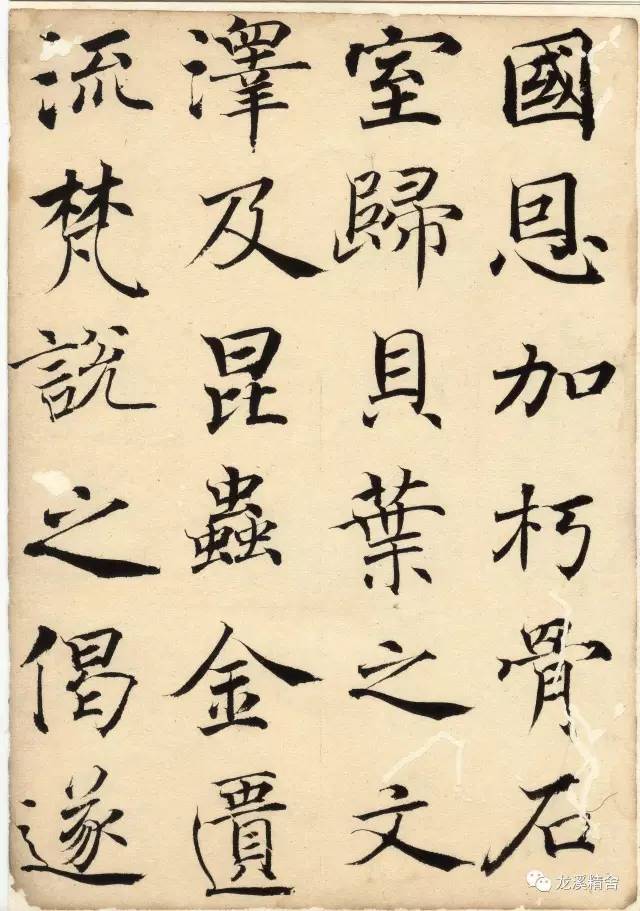 國恩加朽骨石
室歸貝葉之文
澤及昆蟲金匱
流梵說之偈遂
龙溪精舍